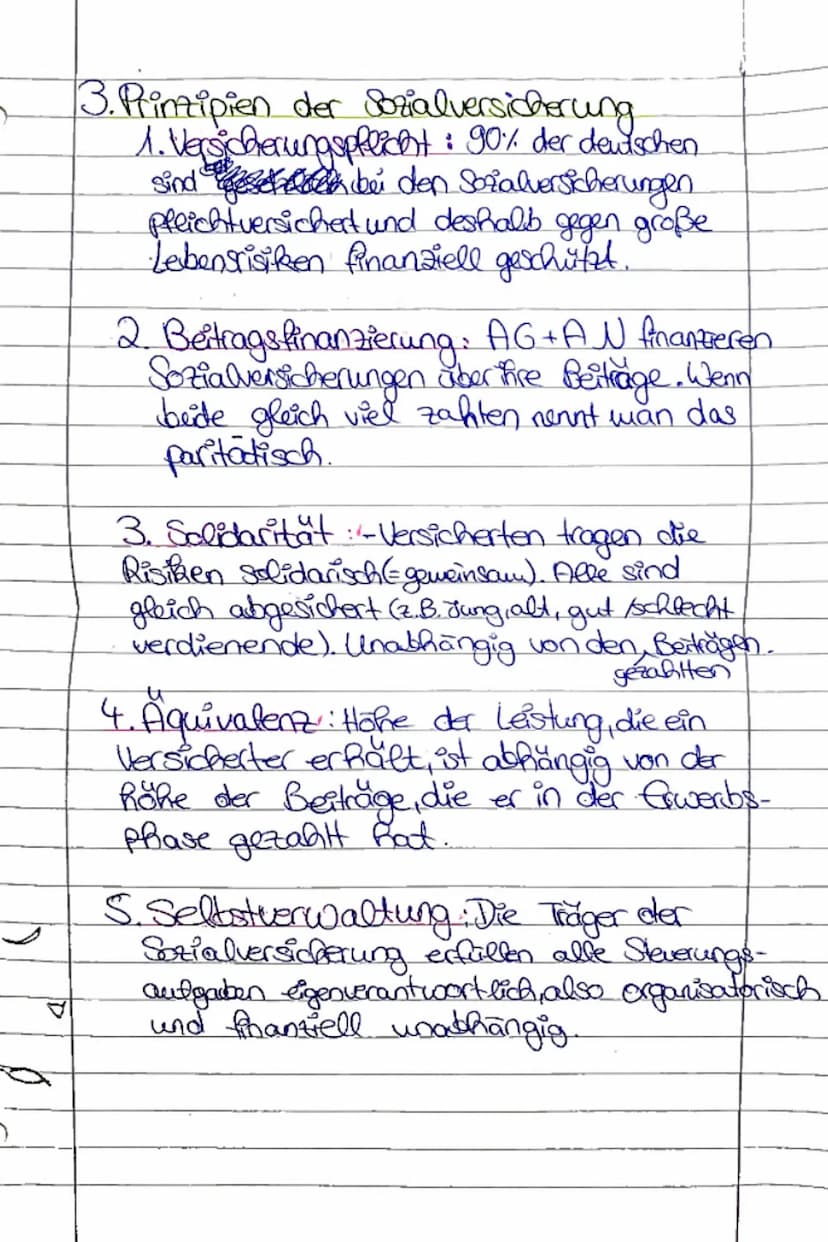 3. Prinzipien der Sozialversicherung
1. Versicherungspflicht : 90% der deutschen
sind bei den Sozialversicherungen
pflichtversichert und deshalb gegen große
Lebensrisiken finanziell geschützt.
2. Beitragsfinanzierung: AG+AN finanzieren
Sozialversicherungen über ihre Beiträge. Wenn
beide gleich viel zahlten nennt man das
paritätisch.
3. Solidarität :- Versicherten tragen die
Risiken solidarisch (=gemeinsam). Alle sind
gleich abgesichert (z.B. Jung, alt, gut /schlecht
verdienende). Unabhängig von den Beiträgen.
gezahlten
4. Äquivalenz : Höhe der Leistung, die ein
Versicherter erhält, ist abhängig von der
höhe der Beiträge, die er in der Erwerbs-
phase gezahlt hat.
5. Selbstverwaltung : Die Träger der
Sozialversicherung erfüllen alle Steuerungs-
aufgaben eigenverantwortlich, also organisatorisch
und finanziell unabhängig.